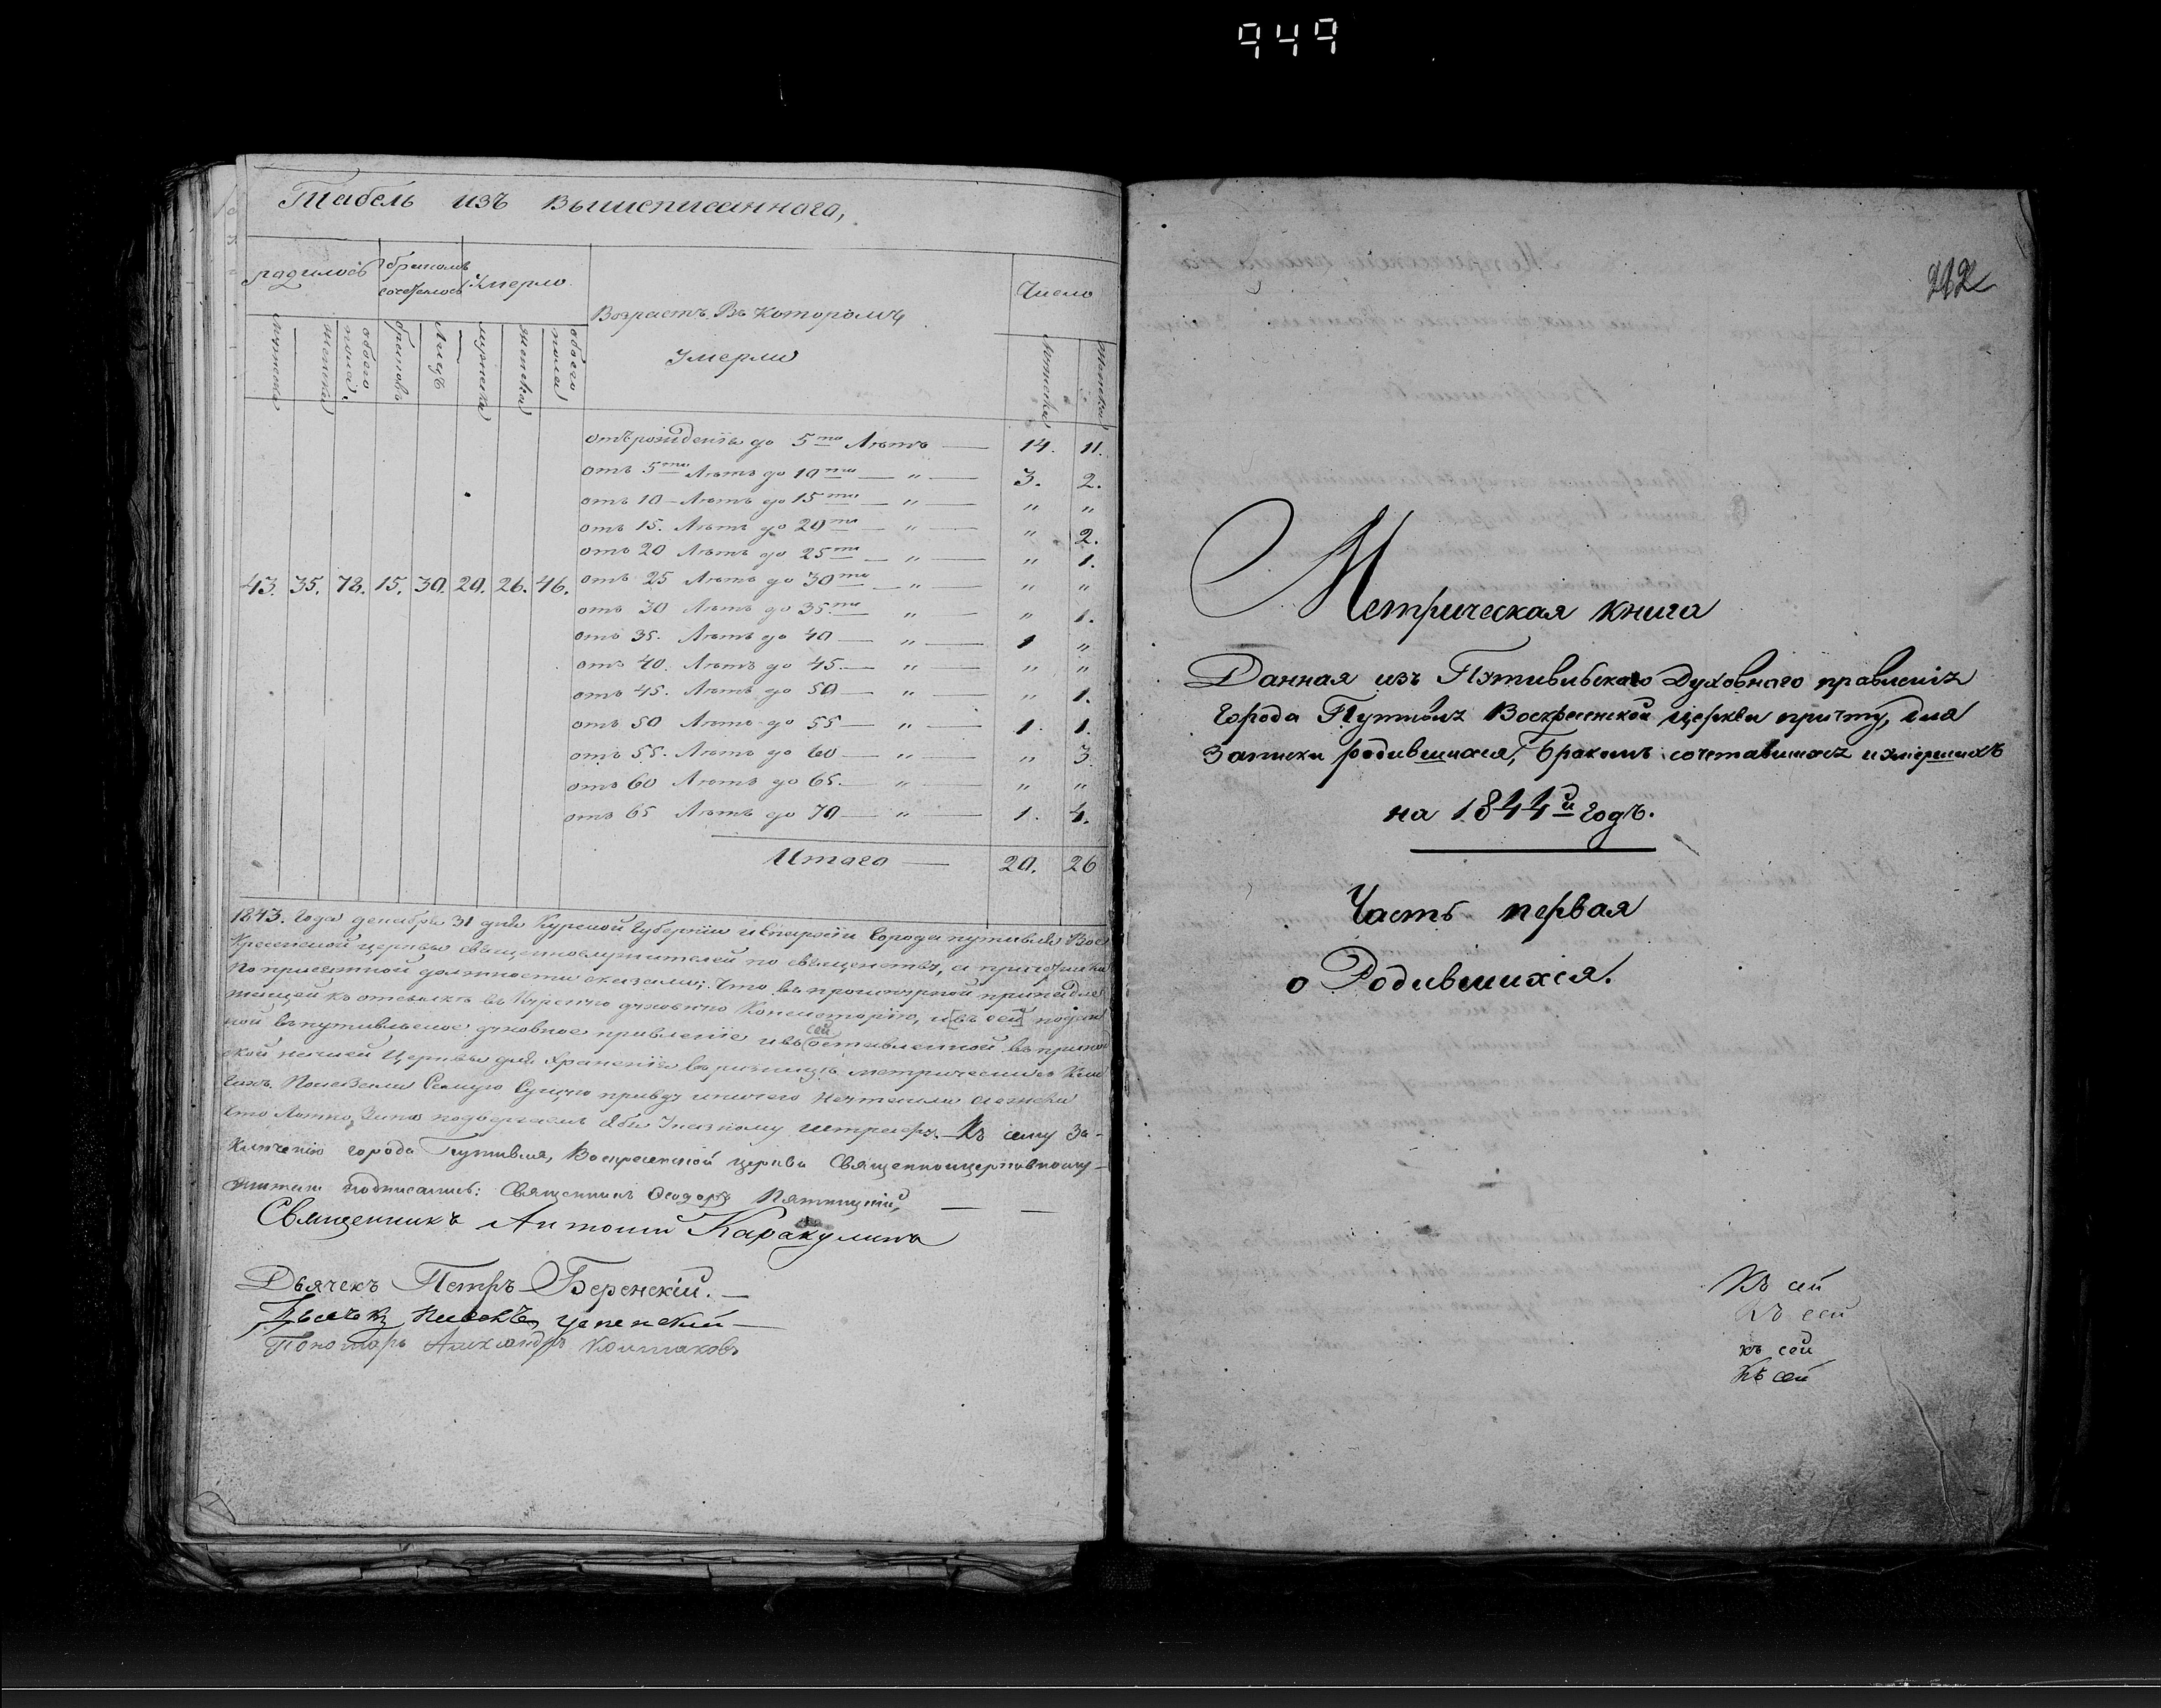 949
Табель изъ вышеписаннаго,
родилось бракомъ сочеталось Умерло. Возрастъ въ которомъ Умерли Число
мужеска женска обоего пола браковъ лицъ мужеска женска обоего пола мужеска женска
отъ рожденія до 5ти Лѣтъ — 14. 11.
отъ 5ти Лѣтъ до 10ти — „ — 3. 2.
отъ 10 Лѣтъ до 15ти — „ — „ „
отъ 15. Лѣтъ до 20ти — „ — „ 2.
отъ 20 Лѣтъ до 25ти — „ — „ 1.
43. 35. 78. 15. 30. 20. 26. 46. отъ 25 Лѣтъ до 30ти — „ — „ „
отъ 30 Лѣтъ до 35ти „ — „ 1.
отъ 35. Лѣтъ до 40 — „ — 1 „
отъ 40. Лѣтъ до 45. — „ — „ „
отъ 45. Лѣтъ до 50 — „ — „ 1.
отъ 50 Лѣтъ до 55 — „ — 1. 1.
отъ 55. Лѣтъ до 60 — „ — „ 3
отъ 60 Лѣтъ до 65. — „ — „ „
отъ 65 Лѣтъ до 70 — „ — 1. 4.
Итого — 20. 26
1843. Года декабря 31 дня Курской Губерніи и Епархіи Города путивля Вос
кресенской церкви священнослужители по священству, а причетники
по присяжной должности сказали; что въ прошнурной принадле
жащей къ отсылкѣ въ Курскую духовную Консисторію, и [въ сей] подан
ной въ путивльское духовное правленіе и въ сей оставленной въ приход
ской нашей Церкви для храненія въ ризницѣ метрической Кни
гахъ. Показали Самую Сущую правду и ничего
что ложно, подвергаемъ себя Указному Штрафу. — Къ сему За-
ключенію города Путивля, Воскресенской церкви Священноцерковнослу-
жители подписались: Священникъ Ѳеодоръ Пятницкій,
Священникъ Антоній Каракулинъ
Дьячекъ Петръ Беренскій. —
Дьячекъ Успенскій —
Пономарь Александръ Колмаковъ
212
Метрическая книга
Данная изъ Путивльскаго Духовнаго правленія
Города Путивля Воскресенской церкви причту, для
Записки родившихся, бракомъ сочетавшихся и умершихъ
на 1844й годъ.
Часть первая
о Родившихся.
Къ сей
Къ сей
къ сей
Къ сей